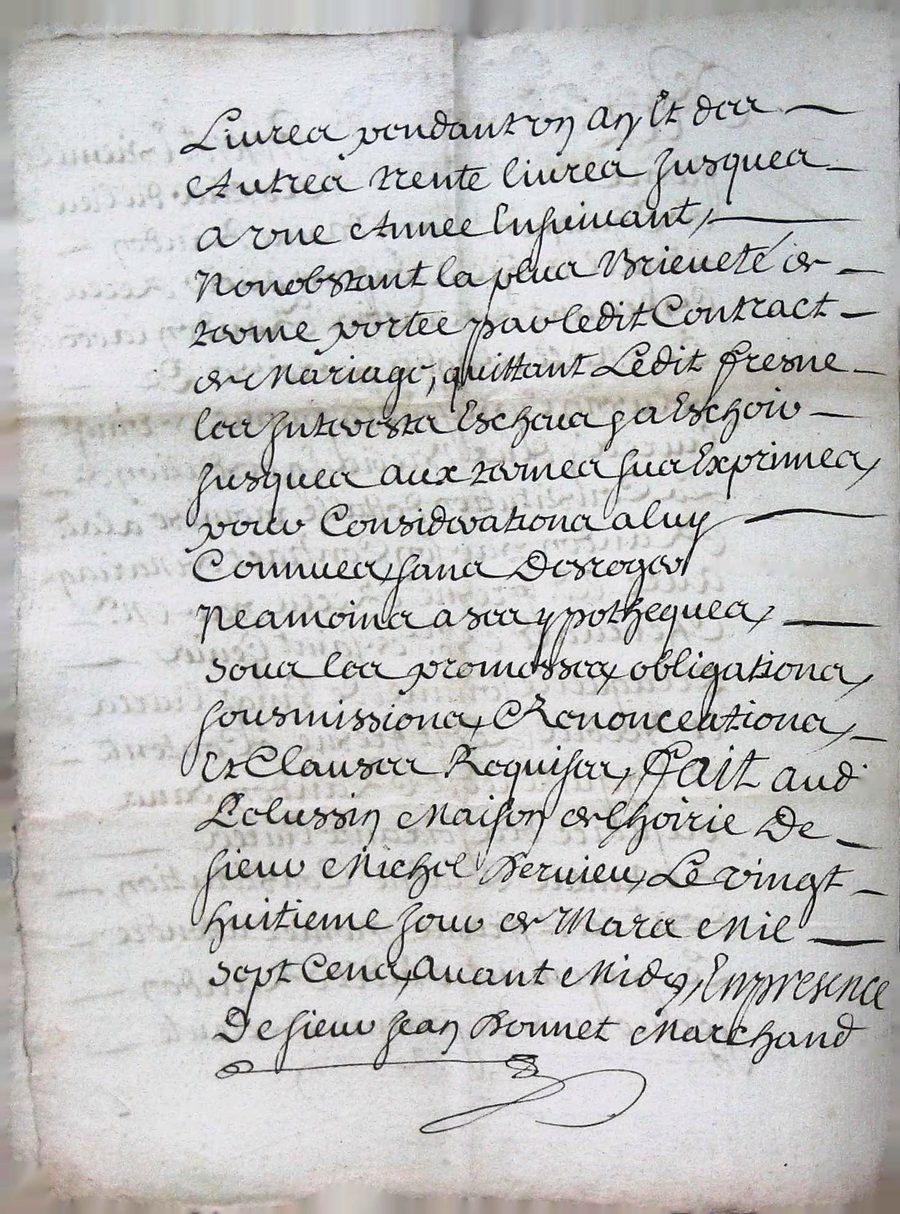 Livres pendant un an Et des
Autres trente livres Jusques
a une Année Ensuivant,
Nonobstant la plus Brieveté de
terme portée par ledit Contract
de Mariage, quittant Ledit fresne
les Interests Escheus, a Eschoir
Jusques aux termes sus Exprimes,
pour Considerations a luy
Connues, sans Desroger
Neamoins a ses ypotheques,
sous les promesses, obligations,
sousmissions, Renonceations,
Et Clauses Requises, fait aud
Lolussin Maison de lhoirie De
sieur Michel Dervieu, Le vingt
huitieme Jour de Mars Mil
sept Cens, Avant Midy, En presence
De sieur Jean Bonnet Marchand